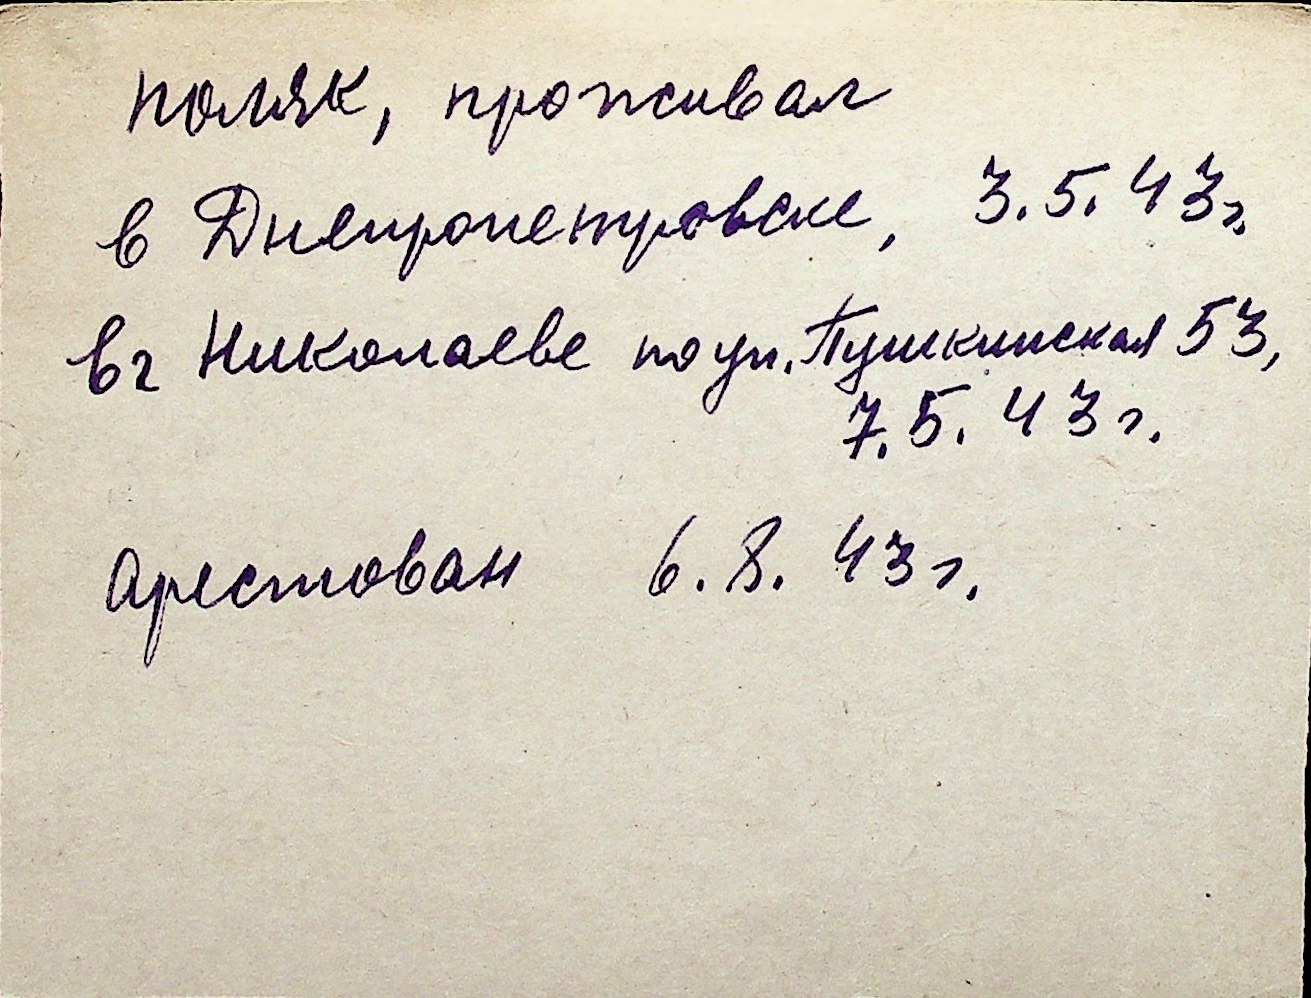 поляк, проживал
в Днепропетровске, 3.5.43г.
в г Николаеве по ул. Пушкинская 53,
7.5.43г.
Арестован 6.8.43г.